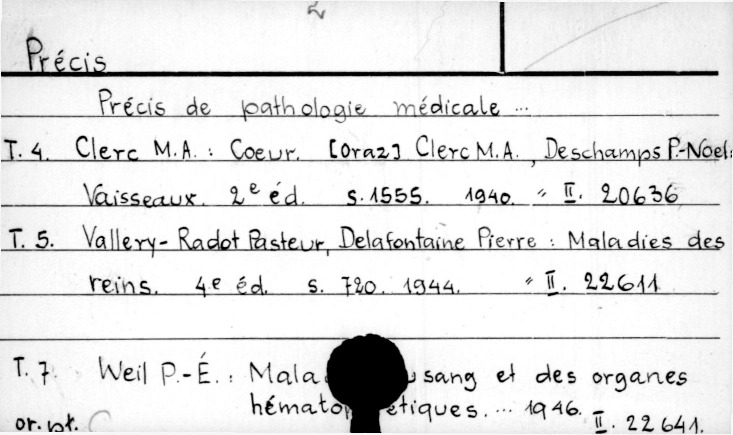 Précis
Précis de pathologie médicale ...
T. 4. Clerc M.A. : Coeur. [Oraz] Clerc M.A., Deschamps P.-Noel:
Vaisseaux. 2e éd. s. 1555. 1940. " II. 20636
T. 5. Vallery-Radot Pasteur, Delafontaine Pierre : Maladies des
reins. 4e éd. s. 720. 1944. " II. 22611
T. 7. Weil P.-É. : sang et des organes
... 1946. II. 22641.
or. pt.